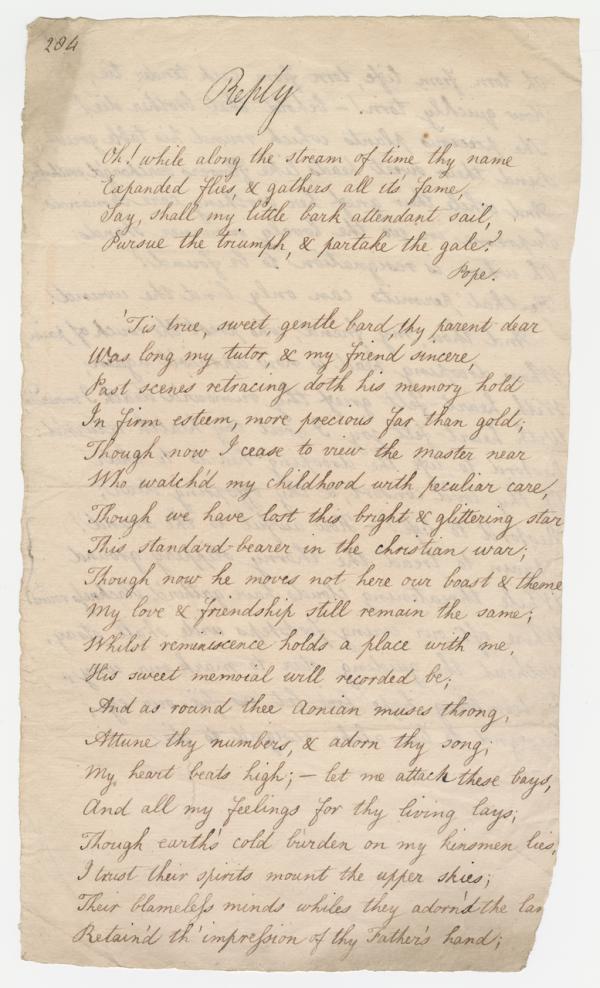 284
Reply
Oh! while along the stream of time thy name
Expanded flies, & gathers all it's fame,
Say, shall my little bark attendant sail,
Pursue the triumph, & partake the gale?
Pope.
'Tis true, sweet, gentle bard, thy parent dear
Was long my tutor, & my friend sincere,
Past scenes retracing doth his memory hold
In firm esteem, more precious far than gold;
Though now I cease to view the master near
Who watch'd my childhood with peculiar care,
Though we have lost this bright & glittering star
This standard-bearer in the christian war;
Though now he moves not here our boast & theme
My love & friendship still remain the same;
Whilst reminiscence holds a place with me,
His sweet memoial will recorded be;
And as round thee Aonian muses throng,
Attune thy numbers, & adorn thy song;
My heart beats high; – let me attack these bays,
And all my feelings for thy living lays;
Though earth's cold burden on my kinsmen lies,
I trust their spirits mount the upper skies;
Their blameless minds whiles they adorn'd the lan
Retain'd th' impression of thy Father's hand;